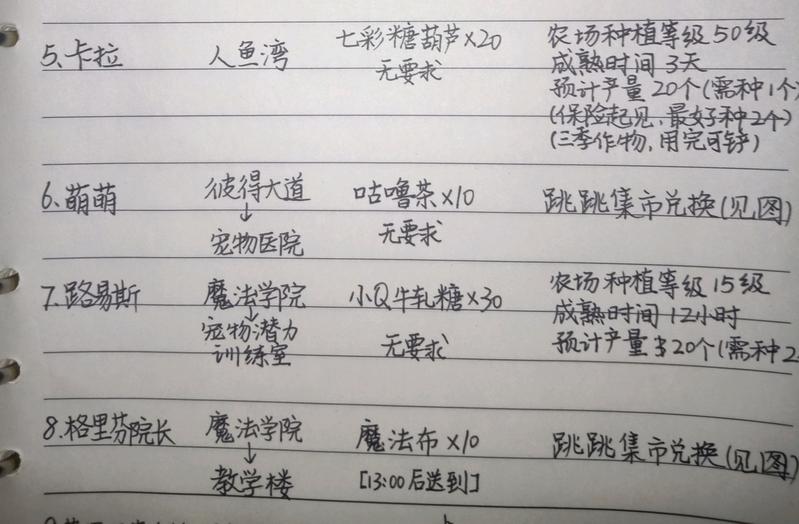 5、卡拉 人鱼湾 七彩糖葫芦×20 农场种植等级50级
无要求 成熟时间3天
预计产量20个(需种1个)
(保险起见,最好种2个)
(三季作物,用完可铲)
6、萌萌 彼得大道 咕噜茶×10 跳跳集市兑换(见图)
↓ 无要求
宠物医院
7、路易斯 魔法学院 小Q牛轧糖×30 农场种植等级15级
↓ 成熟时间12小时
宠物潜力 无要求 预计产量20个(需种2
训练室
8、格里芬院长 魔法学院 魔法布×10 跳跳集市兑换(见图)
↓
教学楼 [13:00后送到]